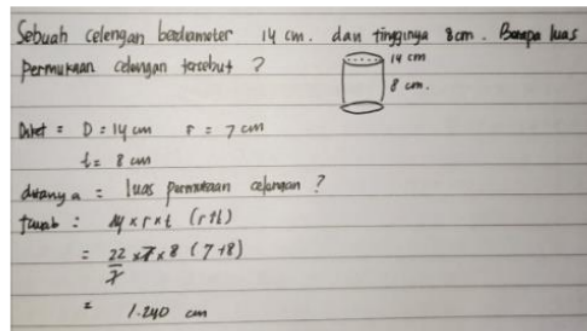 Sebuah celengan berdiameter 14 cm. dan tingginya 8 cm. Berapa luas
permukaan celengan tersebut ?
14 cm
8 cm.
Diket = D = 14 cm r = 7 cm
t = 8 cm
ditanya = luas permukaan celengan ?
Jawab : x r x t (r+t)
= 22/7 x 7 x 8 (7+8)
= 1.240 cm